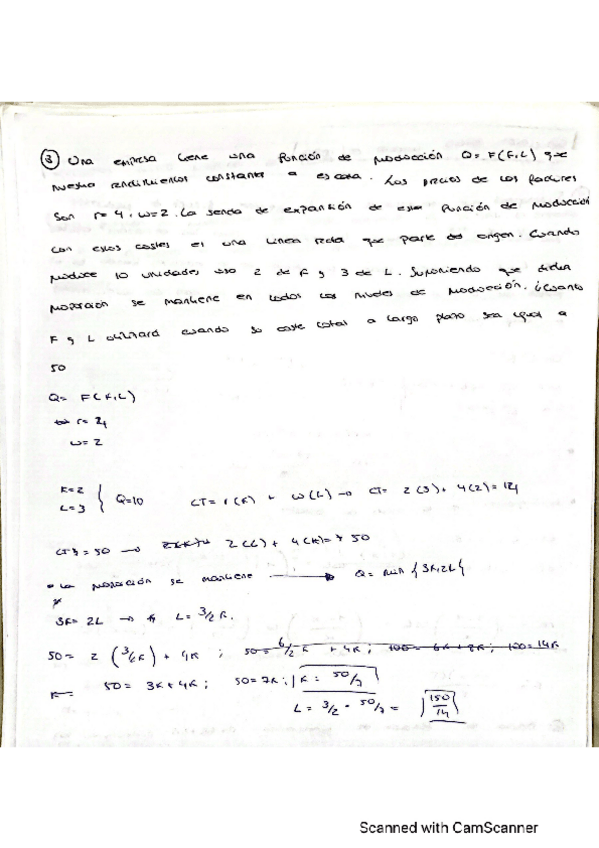 ③ Una empresa tiene una función de producción Q = F(K,L) que
muestra rendimientos constantes a escala. Los precios de los factores
son r=4, w=2. La senda de expansión de esa función de producción
con estos costes es una línea recta que parte del origen. Cuando
produce 10 unidades usa 2 de K y 3 de L. Suponiendo que dicha
proporción se mantiene en todos los niveles de producción. ¿Cuanto
K y L utilizará cuando su coste total a largo plazo sea igual a
50
Q= F(K,L)
r= 4
w=2
K=2
L=3 } Q=10 CT= r(K) + w(L) → CT= 2(3)+ 4(2)=14
= 50 → 2(L) + 4(K)= 50
• La proporción se mantiene → Q= min {3K,2L}
3K= 2L → L= 3/2 K.
50= 2 (3/2K)+ 4K ; 50= 6/2 K + 4K ; 100= 6K + 8K ; 100= 14K
K= 50= 3K+4K ; 50=7K ; K= 50/7
L= 3/2 · 50/7 = 150/14
Scanned with CamScanner